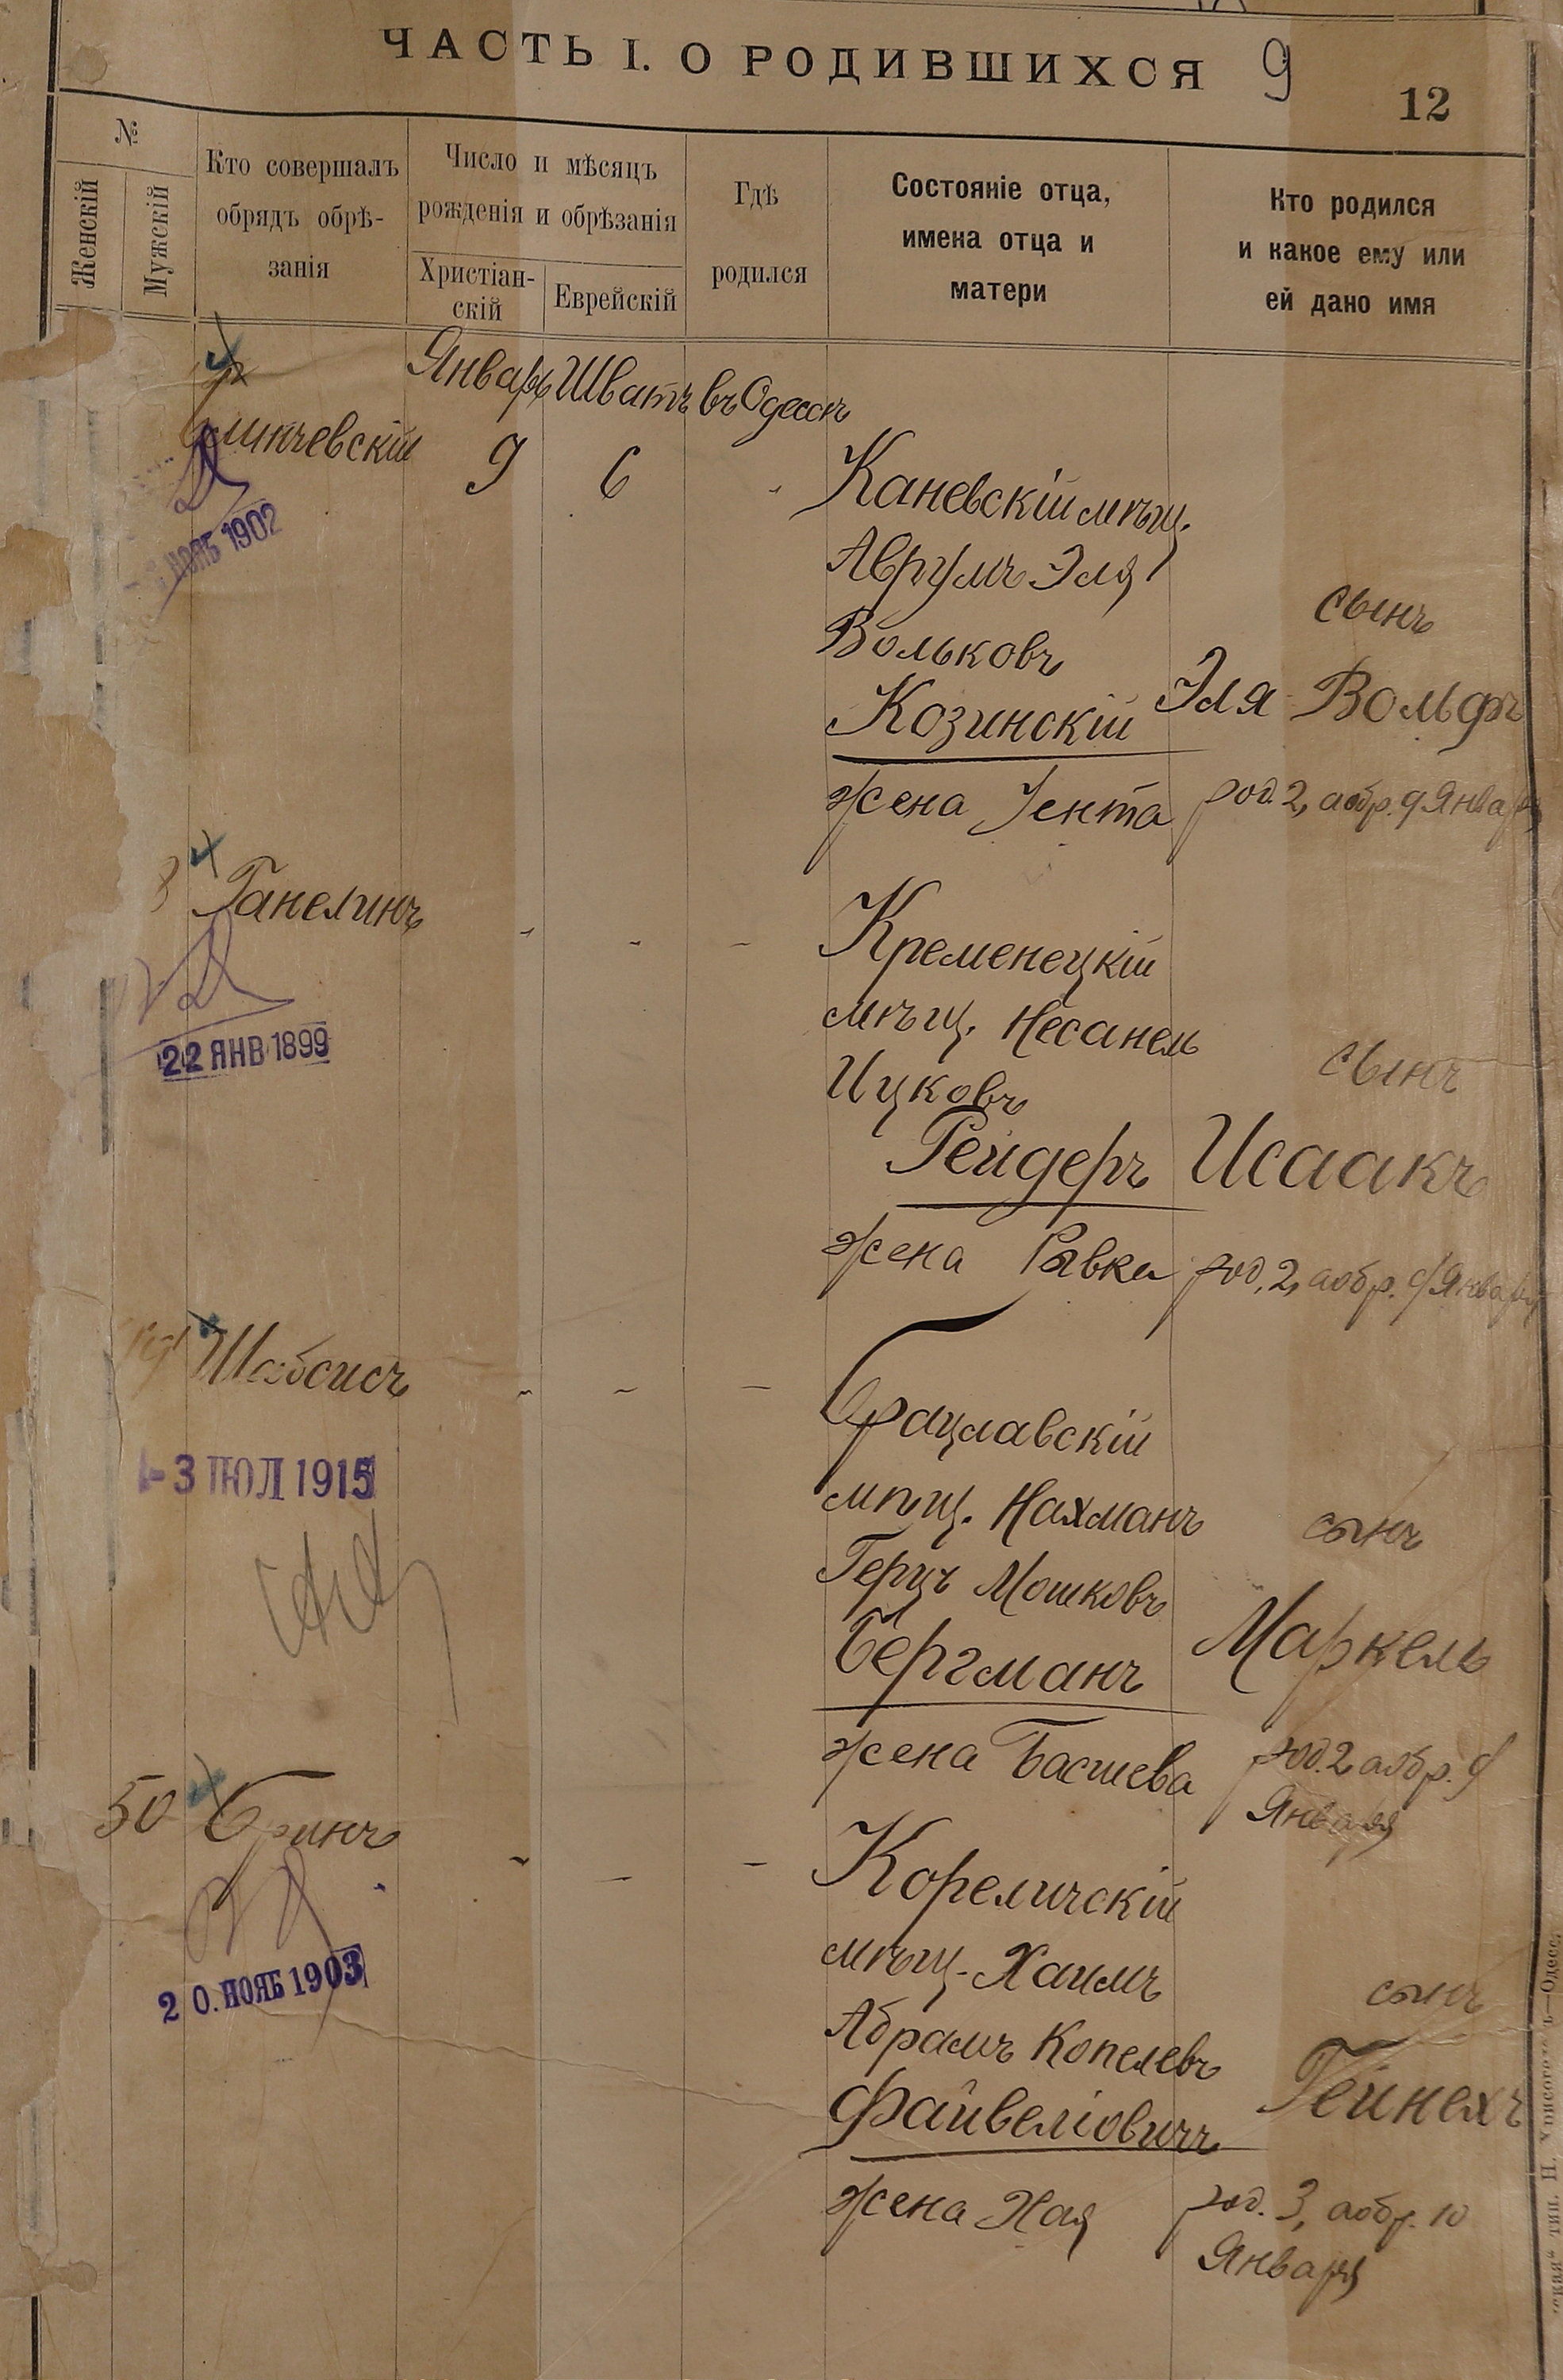 ЧАСТЬ I. О РОДИВШИХСЯ 9
12
№
Женскій
Мужскій
Кто совершалъ
обрядъ обрѣ-
занія
Число и мѣсяцъ
рожденія и обрѣзанія
Христіан-
скій
Еврейскій
Гдѣ
родился
Состояніе отца,
имена отца и
матери
Кто родился
и какое ему или
ей дано имя
Январь Шватъ въ Одессѣ
9 6
НОЯБ 1902
Каневскій мѣщ.
Аврумъ Эля
Вольковъ
Козинскій
жена Іента
сынъ
Эля-Вольфъ
род. 2, а обр. 9 Января
Ганелинъ
22 ЯНВ 1899
Кременецкій
мѣщ. Несанель
Ицковъ
Рейдеръ
жена Рывка
сынъ
Исаакъ
род. 2, а обр. 9 Января
Шабсисъ
-3 ІЮЛ 1915
Брацлавскій
мѣщ. Нахманъ
Герцъ Мошковъ
Бергманъ
жена Басшева
сынъ
Маркель
род. 2 а обр. 9
Января
50 Бринъ
20. НОЯБ 1903
Кореличскій
мѣщ. Хаимъ
Абрамъ Копелевъ
Файвеліовичъ
жена Хая
сынъ
Гейнехъ
род. 3, а обр. 10
Января